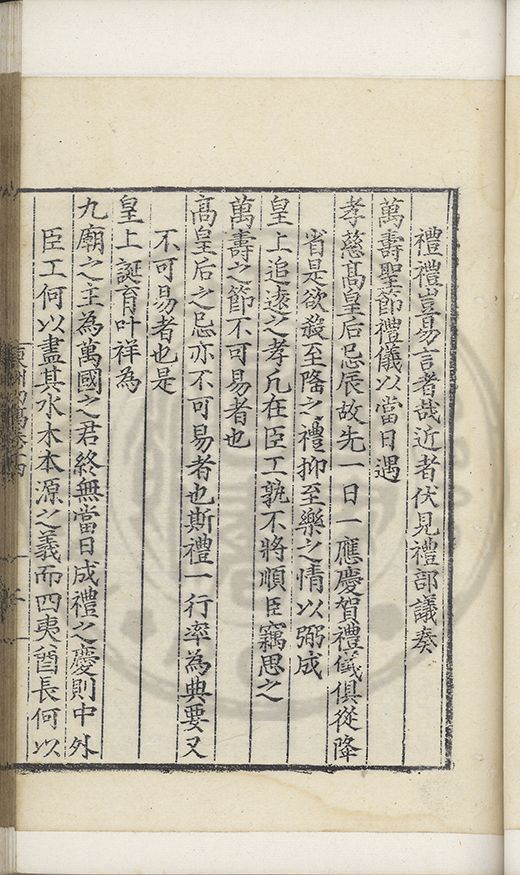 禮禮豈易言者哉近者伏見禮部議奏
萬壽聖節禮儀以當日遇
孝慈高皇后忌辰故先一日一應慶賀禮儀俱從降
省是欲殺至隆之禮抑至樂之情以弼成
皇上追遠之孝凡在臣工孰不將順臣竊思之
萬壽之節不可易者也
高皇后之忌亦不可易者也斯禮一行率為典要又
不可易者也是
皇上誕育叶祥為
九廟之主為萬國之君終無當日成禮之慶則中外
臣工何以盡其水木本源之義而四夷酋長何以